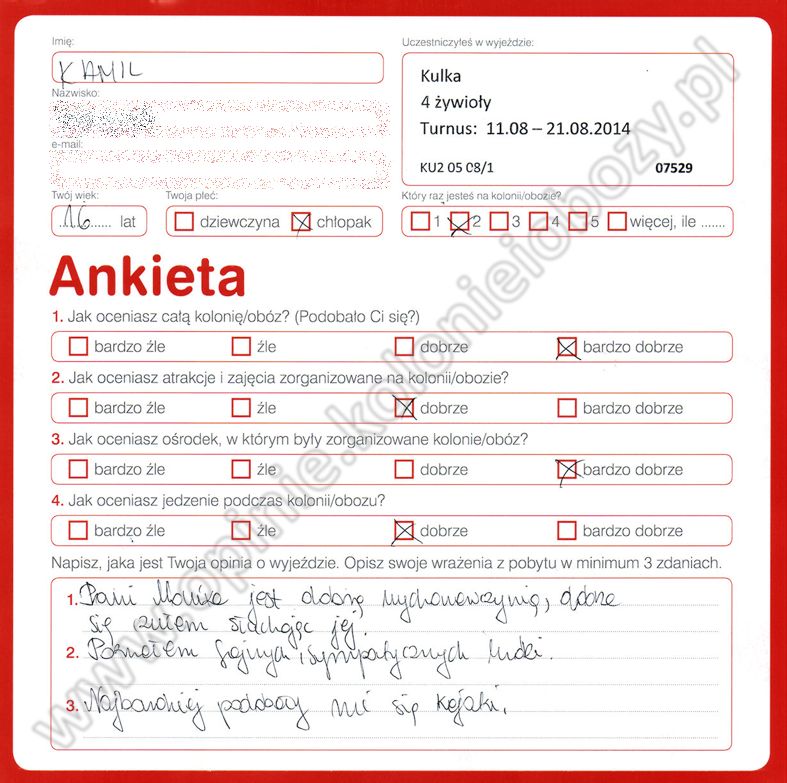 Imię:
KAMIL
Nazwisko:
e-mail:
Uczestniczyłeś w wyjeździe:
Kulka
4 żywioły
Turnus: 11.08 – 21.08.2014
KU2 05 08/1 07529
Twój wiek:
..16...... lat
Twoja płeć:
dziewczyna chłopak
Który raz jesteś na kolonii/obozie?
1 2 3 4 5 więcej, ile .......
Ankieta
1. Jak oceniasz całą kolonię/obóz? (Podobało Ci się?)
bardzo źle źle dobrze bardzo dobrze
2. Jak oceniasz atrakcje i zajęcia zorganizowane na kolonii/obozie?
bardzo źle źle dobrze bardzo dobrze
3. Jak oceniasz ośrodek, w którym były zorganizowane kolonie/obóz?
bardzo źle źle dobrze bardzo dobrze
4. Jak oceniasz jedzenie podczas kolonii/obozu?
bardzo źle źle dobrze bardzo dobrze
Napisz, jaka jest Twoja opinia o wyjeździe. Opisz swoje wrażenia z pobytu w minimum 3 zdaniach.
1. Pani Monika jest dobrą wychowawczynią, dobrze
się czułem słuchając jej.
2. Poznałem fajnych i sympatycznych ludzi.
3. Najbardziej podobały mi się kajaki.
www.opinie.kolonieiobozy.pl